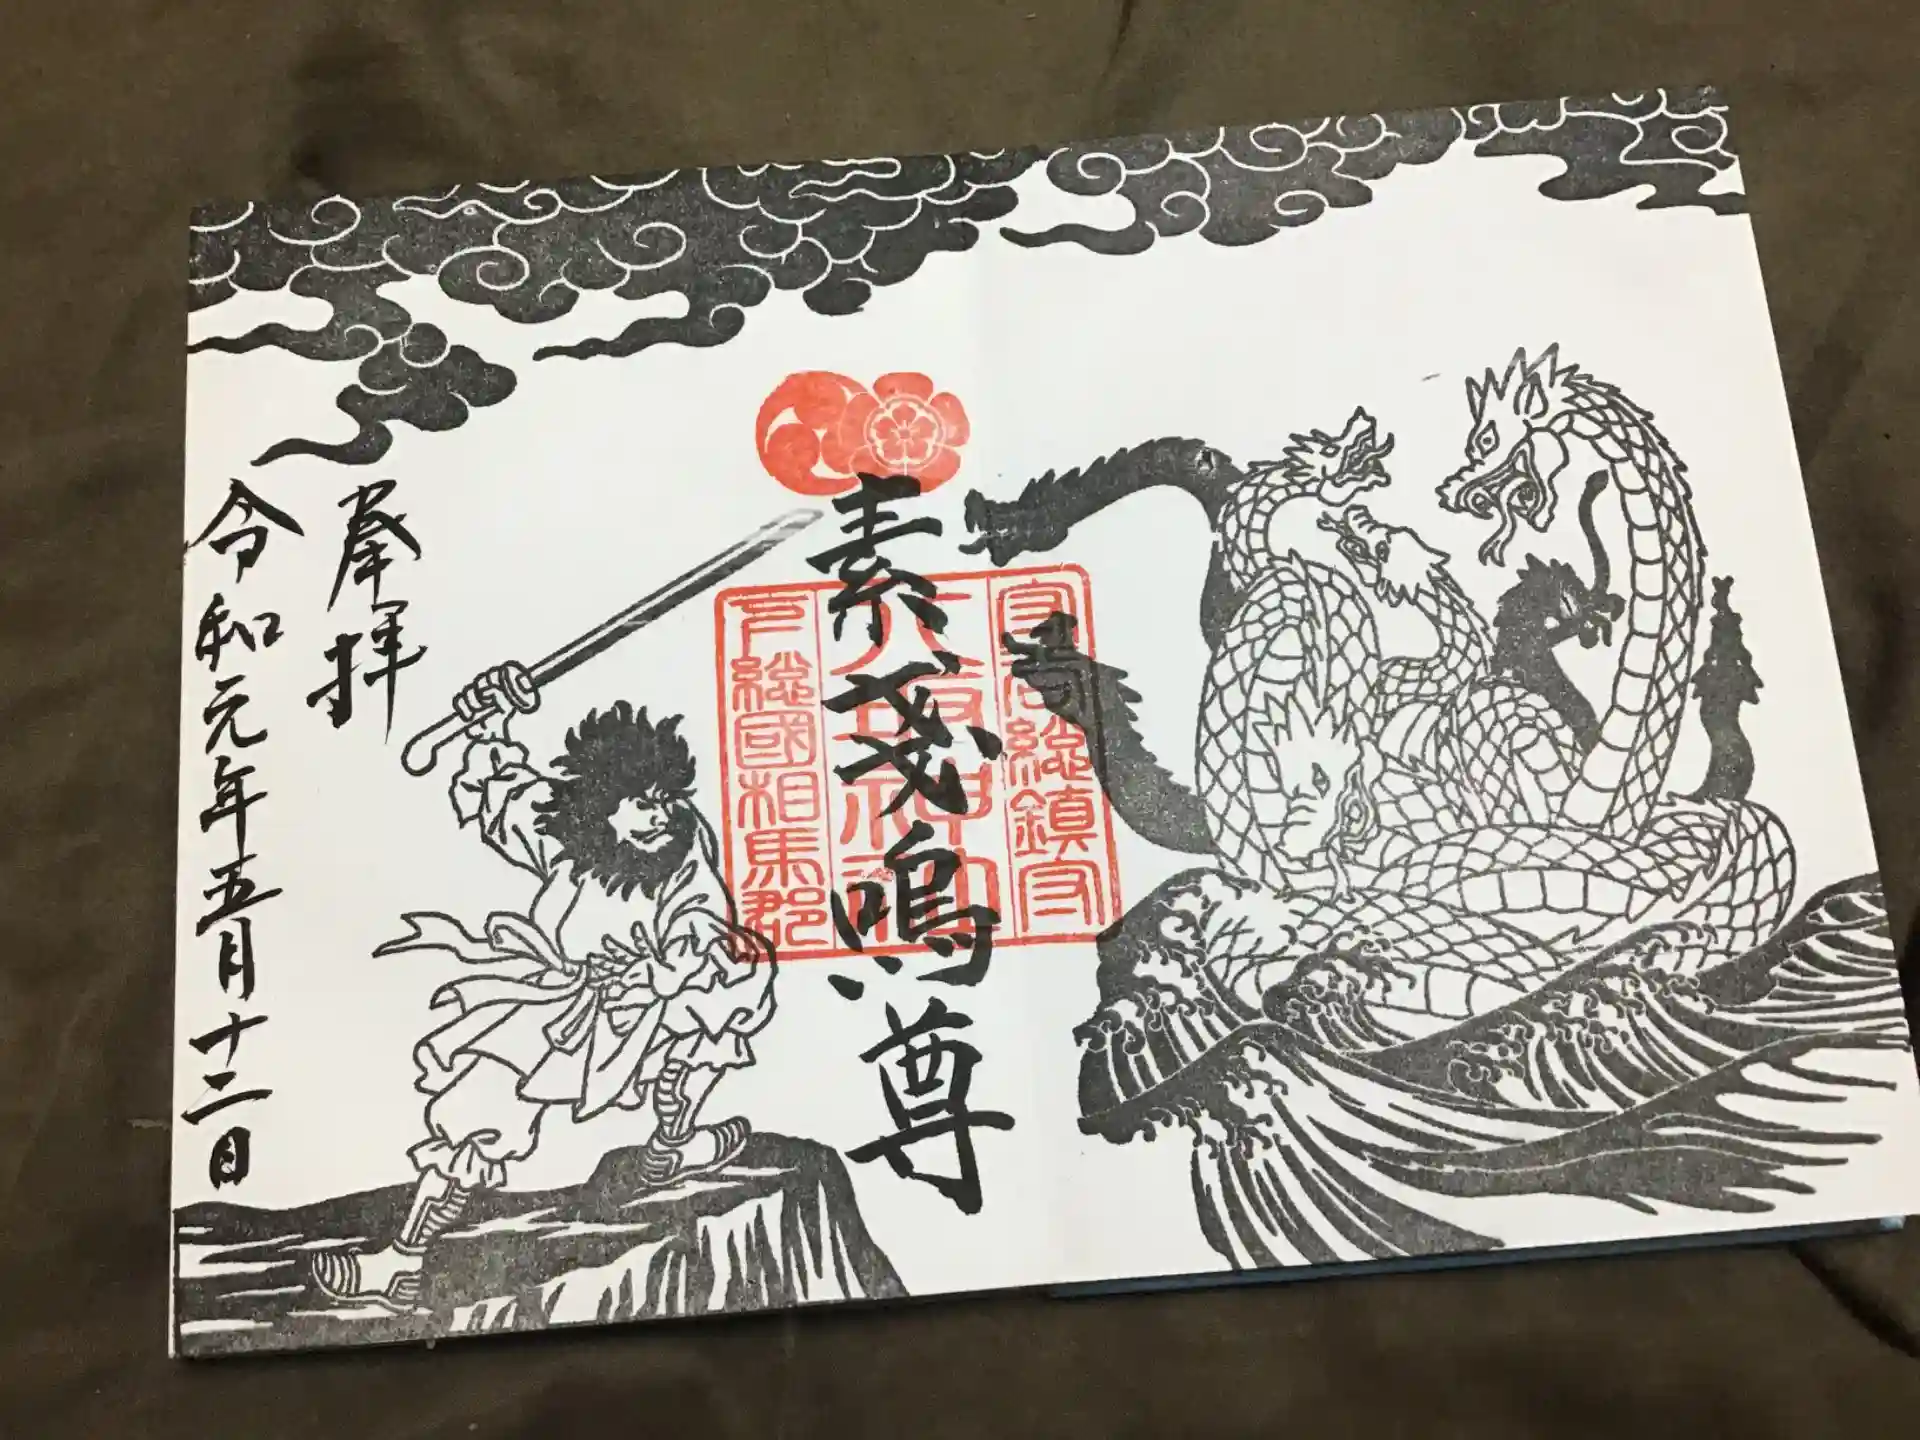 素戔嗚尊
守谷総鎮守
八坂神社
下総國相馬郡
奉拝
令和元年五月十二日